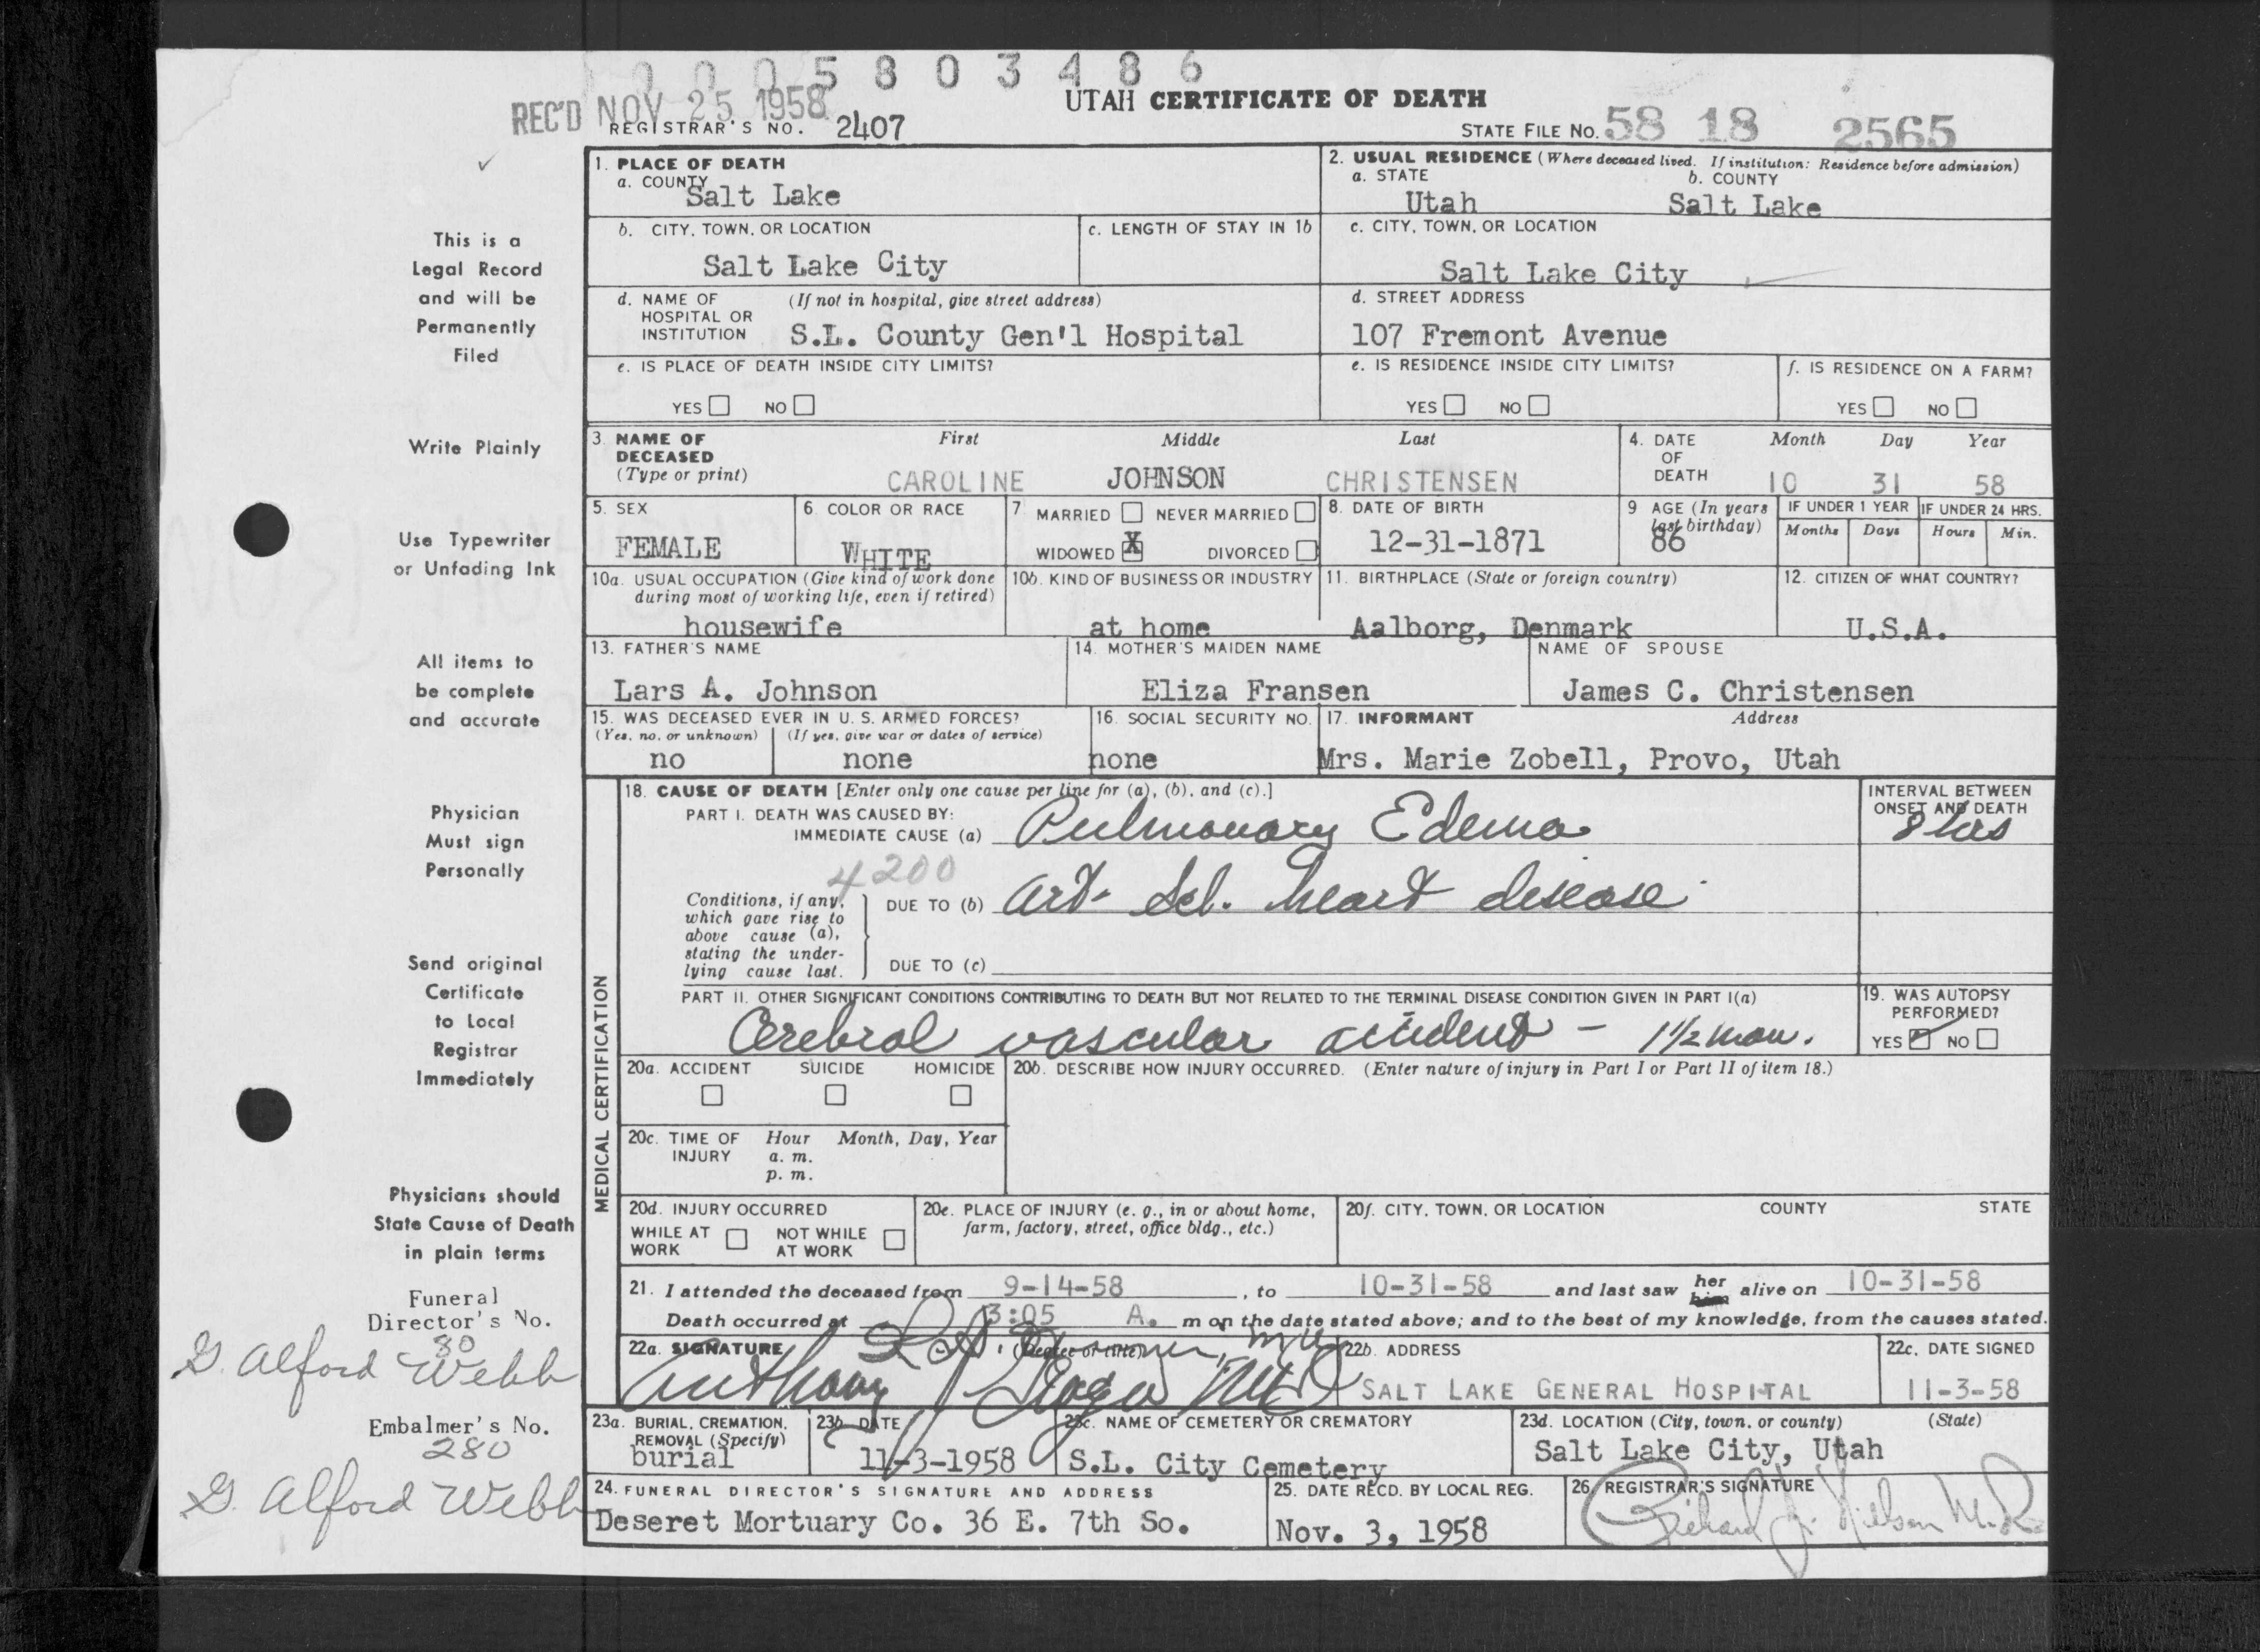 0 0 0 5 8 0 3 4 8 6
REC'D NOV 25 1958
UTAH CERTIFICATE OF DEATH
REGISTRAR'S NO. 2407
STATE FILE NO. 58 18 2565
1. PLACE OF DEATH
a. COUNTY
Salt Lake
2. USUAL RESIDENCE (Where deceased lived. If institution: Residence before admission)
a. STATE b. COUNTY
Utah Salt Lake
b. CITY, TOWN, OR LOCATION
Salt Lake City
c. LENGTH OF STAY IN 1b
c. CITY, TOWN, OR LOCATION
Salt Lake City
d. NAME OF HOSPITAL OR INSTITUTION (If not in hospital, give street address)
S.L. County Gen'l Hospital
d. STREET ADDRESS
107 Fremont Avenue
e. IS PLACE OF DEATH INSIDE CITY LIMITS?
YES NO
e. IS RESIDENCE INSIDE CITY LIMITS?
YES NO
f. IS RESIDENCE ON A FARM?
YES NO
3. NAME OF DECEASED (Type or print)
First Middle Last
CAROLINE JOHNSON CHRISTENSEN
4. DATE OF DEATH
Month Day Year
10 31 58
5. SEX
FEMALE
6. COLOR OR RACE
WHITE
7. MARRIED NEVER MARRIED
WIDOWED X DIVORCED
8. DATE OF BIRTH
12-31-1871
9 AGE (In years last birthday)
86
IF UNDER 1 YEAR
Months Days
IF UNDER 24 HRS.
Hours Min.
10a. USUAL OCCUPATION (Give kind of work done during most of working life, even if retired)
housewife
10b. KIND OF BUSINESS OR INDUSTRY
at home
11. BIRTHPLACE (State or foreign country)
Aalborg, Denmark
12. CITIZEN OF WHAT COUNTRY?
U.S.A.
13. FATHER'S NAME
Lars A. Johnson
14. MOTHER'S MAIDEN NAME
Eliza Fransen
NAME OF SPOUSE
James C. Christensen
15. WAS DECEASED EVER IN U. S. ARMED FORCES?
(Yes, no, or unknown) (If yes, give war or dates of service)
no none
16. SOCIAL SECURITY NO.
none
17. INFORMANT Address
Mrs. Marie Zobell, Provo, Utah
MEDICAL CERTIFICATION
18. CAUSE OF DEATH [Enter only one cause per line for (a), (b), and (c).]
PART I. DEATH WAS CAUSED BY:
IMMEDIATE CAUSE (a) Pulmonary Edema
INTERVAL BETWEEN ONSET AND DEATH
8 hrs
4200
Conditions, if any, which gave rise to above cause (a), stating the underlying cause last.
DUE TO (b) Art. Scl. heart disease
DUE TO (c)
PART II. OTHER SIGNIFICANT CONDITIONS CONTRIBUTING TO DEATH BUT NOT RELATED TO THE TERMINAL DISEASE CONDITION GIVEN IN PART I(a)
Cerebral vascular accident - 1 1/2 mon.
19. WAS AUTOPSY PERFORMED?
YES NO
20a. ACCIDENT SUICIDE HOMICIDE
20b. DESCRIBE HOW INJURY OCCURRED. (Enter nature of injury in Part I or Part II of item 18.)
20c. TIME OF INJURY Hour Month, Day, Year
a. m.
p. m.
20d. INJURY OCCURRED
WHILE AT WORK NOT WHILE AT WORK
20e. PLACE OF INJURY (e. g., in or about home, farm, factory, street, office bldg., etc.)
20f. CITY, TOWN, OR LOCATION COUNTY STATE
21. I attended the deceased from 9-14-58, to 10-31-58 and last saw her him alive on 10-31-58
Death occurred at 3:05 A. m on the date stated above; and to the best of my knowledge, from the causes stated.
22a. SIGNATURE (Degree or title)
Anthony J.
22b. ADDRESS
SALT LAKE GENERAL HOSPITAL
22c. DATE SIGNED
11-3-58
23a. BURIAL, CREMATION, REMOVAL (Specify)
burial
23b. DATE
11-3-1958
23c. NAME OF CEMETERY OR CREMATORY
S.L. City Cemetery
23d. LOCATION (City, town, or county) (State)
Salt Lake City, Utah
24. FUNERAL DIRECTOR'S SIGNATURE AND ADDRESS
Deseret Mortuary Co. 36 E. 7th So.
25. DATE RECD. BY LOCAL REG.
Nov. 3, 1958
26. REGISTRAR'S SIGNATURE
Richard J. Nielson M.D.
This is a
Legal Record
and will be
Permanently
Filed
Write Plainly
Use Typewriter
or Unfading Ink
All items to
be complete
and accurate
Physician
Must sign
Personally
Send original
Certificate
to Local
Registrar
Immediately
Physicians should
State Cause of Death
in plain terms
Funeral
Director's No.
80
G. Alford Webb
Embalmer's No.
280
G. Alford Webb